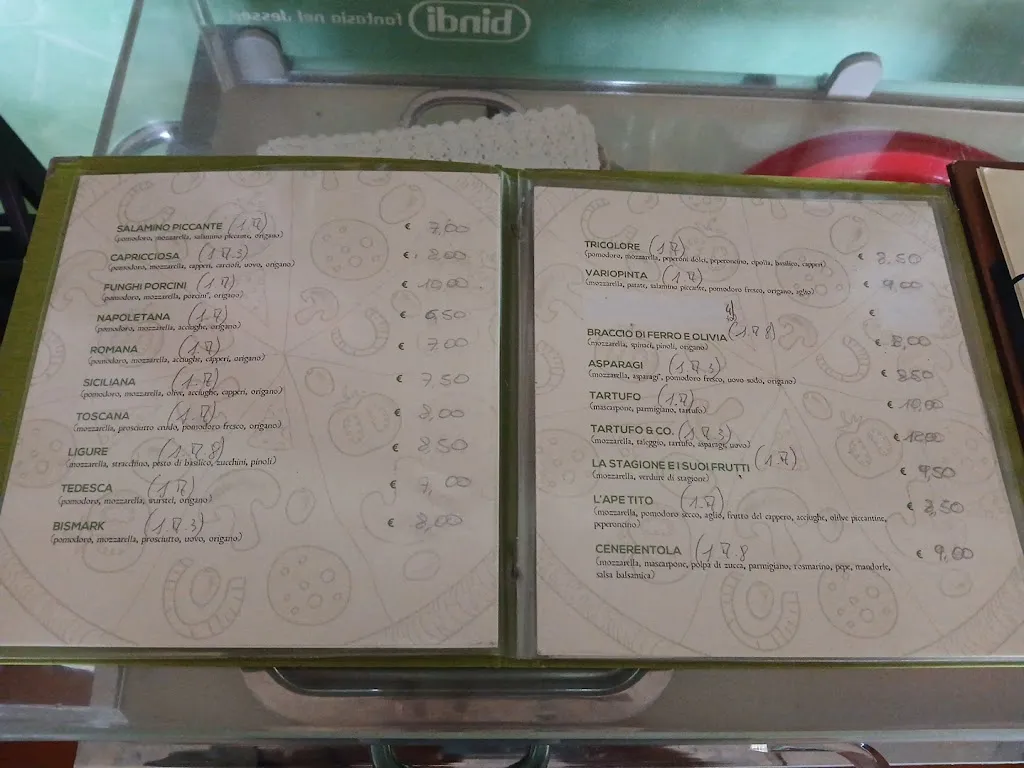 fantasia nel
bindi
SALAMINO PICCANTE (1.7) € 7,00
(pomodoro, mozzarella, salamino piccante, origano)
CAPRICCIOSA (1.7.3) € 8,00
(pomodoro, mozzarella, capperi, carciofi, uovo, origano)
FUNGHI PORCINI (1.7) € 10,00
(pomodoro, mozzarella, porcini*, origano)
NAPOLETANA (1.7) € 6,50
(pomodoro, mozzarella, acciughe, origano)
ROMANA (1.7) € 7,00
(pomodoro, mozzarella, acciughe, capperi, origano)
SICILIANA (1.7) € 7,50
(pomodoro, mozzarella, olive, acciughe, capperi, origano)
TOSCANA (1.7) € 8,00
(mozzarella, prosciutto crudo, pomodoro fresco, origano)
LIGURE (1.7.8) € 8,50
(mozzarella, stracchino, pesto di basilico, zucchini, pinoli)
TEDESCA (1.7) € 7,00
(pomodoro, mozzarella, wurstel, origano)
BISMARK (1.7.3) € 8,00
(pomodoro, mozzarella, prosciutto, uovo, origano)
TRICOLORE (1.7) € 8.50
(pomodoro, mozzarella, peperoni dolci, peperoncino, cipolla, basilico, capperi)
VARIOPINTA (1.7) € 9,00
(mozzarella, patate, salamino piccante, pomodoro fresco, origano, aglio)
€
BRACCIO DI FERRO E OLIVIA (1.7.8) € 8,00
(mozzarella, spinaci, pinoli, origano)
ASPARAGI (1.7.3) € 8.50
(mozzarella, asparagi*, pomodoro fresco, uovo sodo, origano)
TARTUFO (1.7) € 10,00
(mascarpone, parmigiano, tartufo)
TARTUFO & CO. (1.7.3) € 12,00
(mozzarella, taleggio, tartufo, asparagi, uovo)
LA STAGIONE E I SUOI FRUTTI (1.7) € 9,50
(mozzarella, verdure di stagione)
L'APE TITO (1.7) € 8,50
(mozzarella, pomodoro secco, aglio, frutto del cappero, acciughe, olilve piccantine,
peperoncino)
CENERENTOLA (1.7.8 € 9,00
(mozzarella, mascarpone, polpa di zucca, parmigiano, rosmarino, pepe, mandorle,
salsa balsamica)